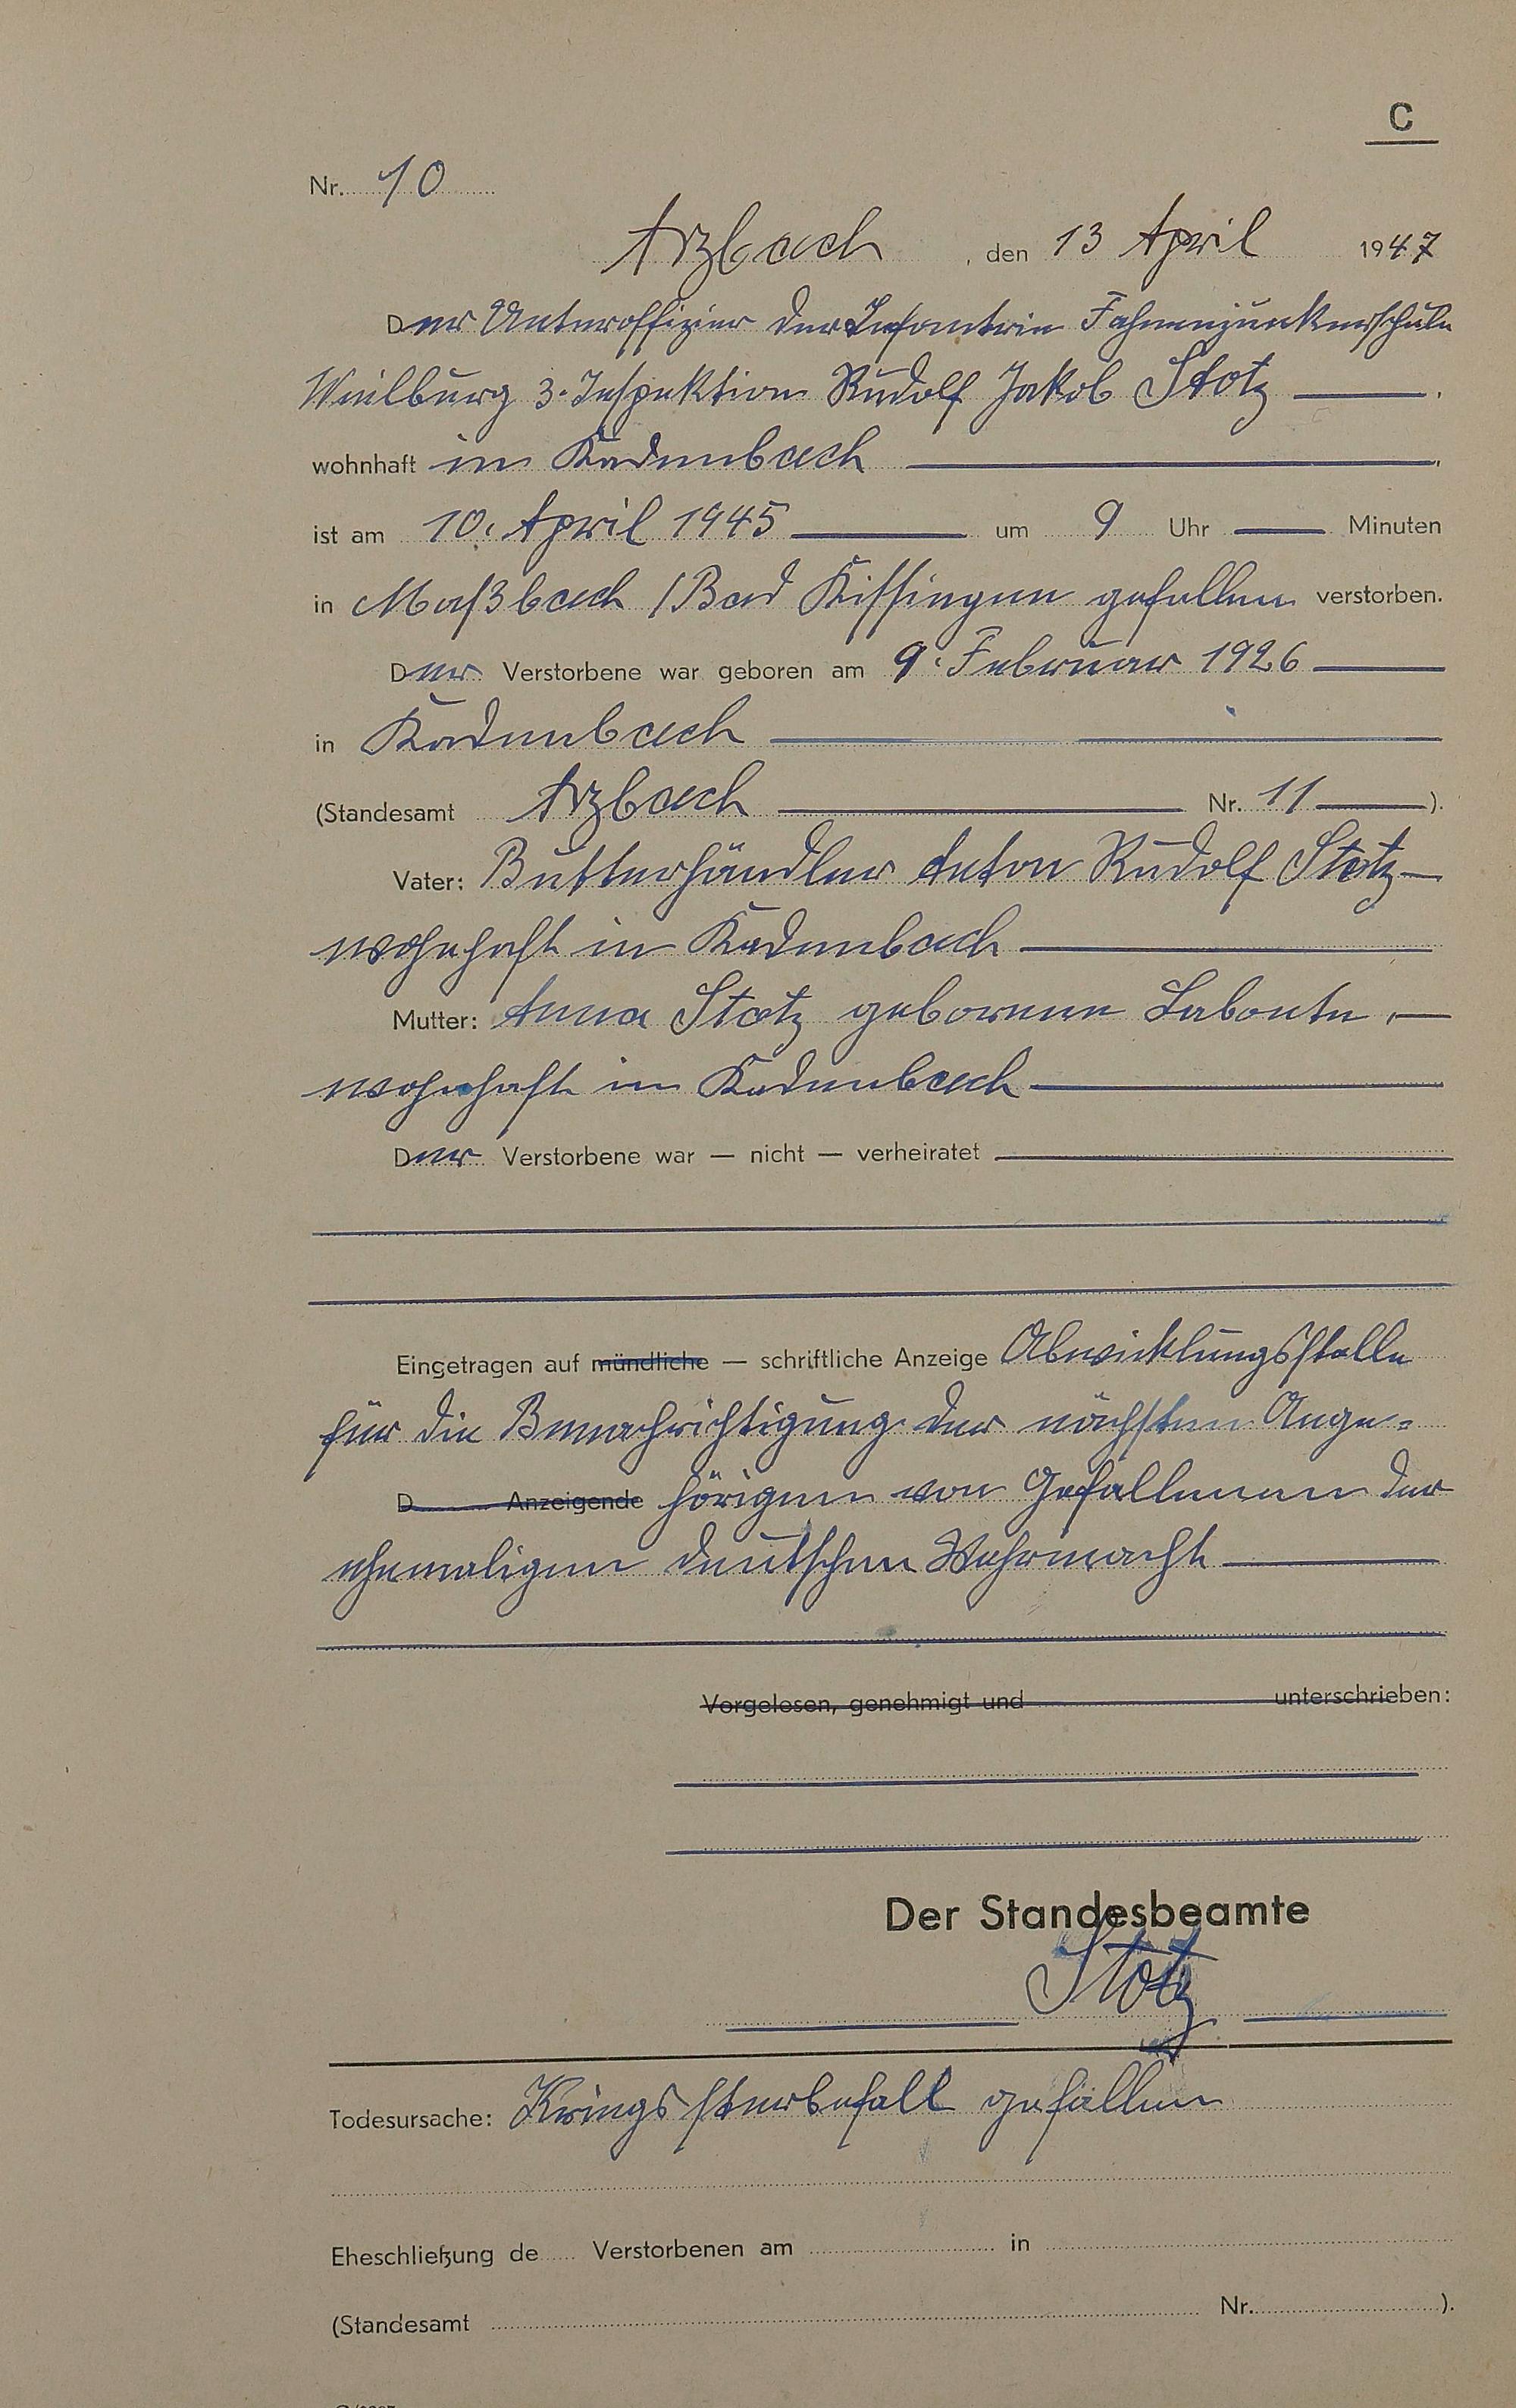 C
Nr. 10
Arzbach, den 13 April 1947
Der Unteroffizier der Infanterie Fahnenjunkerschule
Weilburg 3. Inspektion Rudolf Jakob Stotz
wohnhaft in Kadenbach
ist am 10. April 1945 um 9 Uhr Minuten
in Maßbach / Bad Kissingen gefallen verstorben.
Der Verstorbene war geboren am 9. Februar 1926
in Kadenbach
(Standesamt Arzbach Nr. 11 ).
Vater: Butterhändler Anton Rudolf Stotz
wohnhaft in Kadenbach
Mutter: Anna Stotz geborene Labonte,
wohnhaft in Kadenbach
Der Verstorbene war — nicht — verheiratet
Eingetragen auf mündliche — schriftliche Anzeige Abwicklungsstelle
für die Benachrichtigung der nächsten Ange=
D Anzeigende hörigen von Gefallenen der
ehemaligen deutschen Wehrmacht
Vorgelesen, genehmigt und unterschrieben:
Der Standesbeamte
Stotz
Todesursache: Kriegssterbefall gefallen
Eheschließung de Verstorbenen am in
(Standesamt Nr. ).